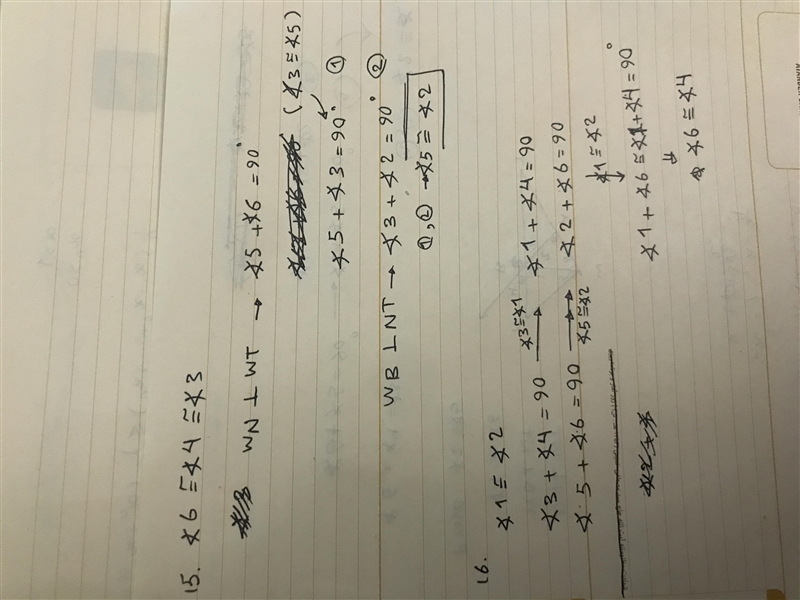 15. ∡6 ≅ ∡4 ≅ ∡3
WN ⊥ WT → ∡5 + ∡6 = 90°
(∡3 ≅ ∡5)
∡5 + ∡3 = 90° ①
WB ⊥ NT → ∡3 + ∡2 = 90° ②
①, ② → ∡5 ≅ ∡2
16. ∡1 ≅ ∡2
∡3 + ∡4 = 90 ∡3≅∡1 → ∡1 + ∡4 = 90
∡5 + ∡6 = 90 → ∡5≅∡2 ∡2 + ∡6 = 90
∡1 ≅ ∡2
∡1 + ∡6 ≅ ∡1 + ∡4 = 90°
∡6 ≅ ∡4